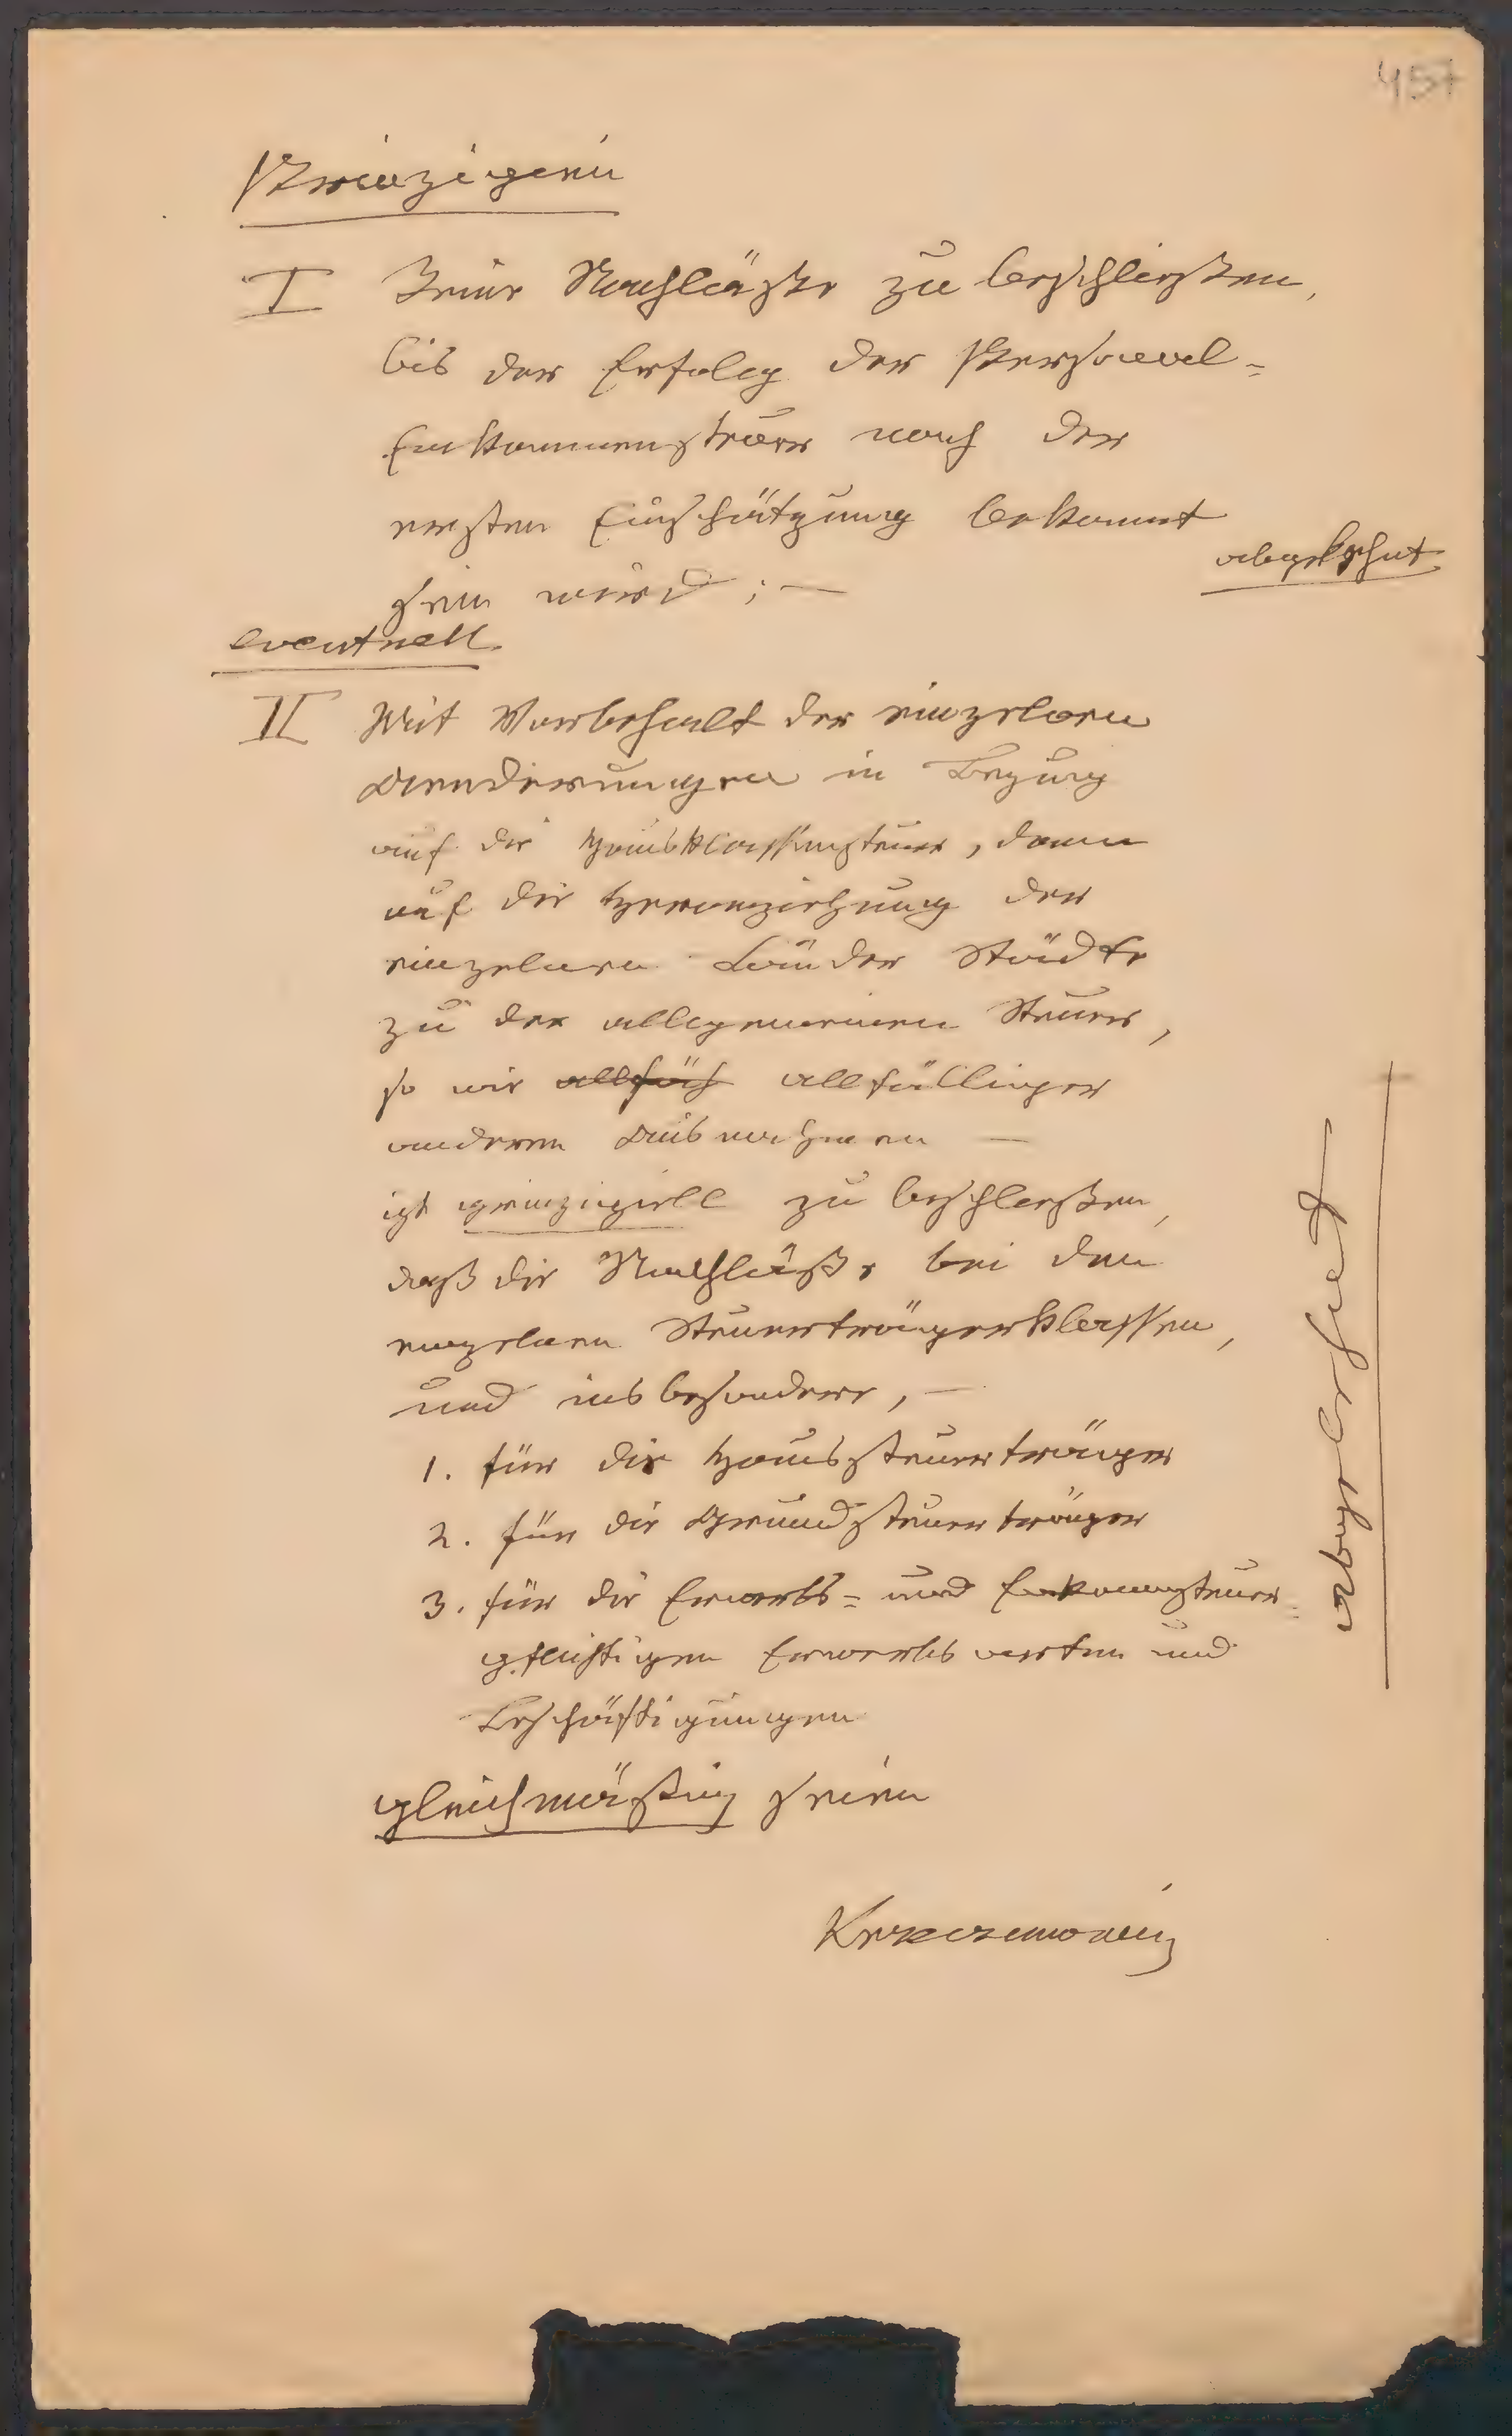 457
Prinzipien
I Keine Nachläße zu beschließen,
bis der Erfolg der Personal=
Einkommensteuer nach der
ersten Einschätzung bekannt
abgelehnt
sein wird; —
eventuell
II Mit Vorbehalt der einzelnen
Aenderungen in Bezug
auf die Hausklassensteuer, dann
auf die Heranziehung der
einzelnen Länder Städte
zu der allgemeinen Steuer,
so wie allfäh allfälliger
anderen Ausnahmen —
ist prinzipiell zu beschließen,
daß die Nachläße bei den
einzelnen Steuerträgerklassen,
und insbesondere, —
1. für die Haussteuerträger
2. für die Grundsteuerträger
3. für die Erwerbs= und Einkommensteuer=
pflichtigen Erwerbsarten und
Beschäftigungen
gleichmäßig seien
abgelehnt